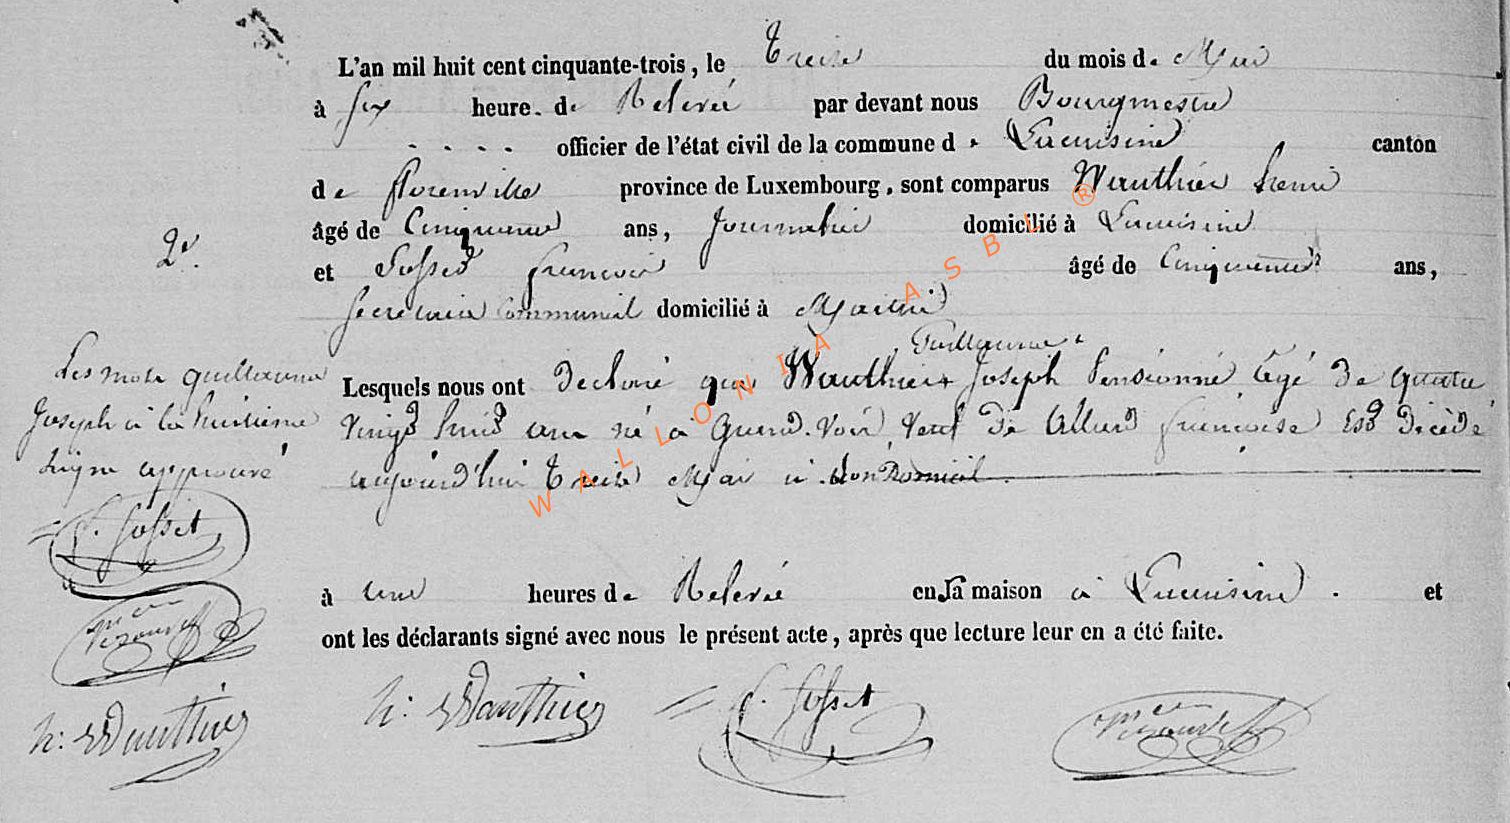 L'an mil huit cent cinquante-trois, le Treize du mois de Mai
à six heure. de Relevée par devant nous Bourgmestre
. . . . officier de l'état civil de la commune de Lacuisine canton
de Florenville province de Luxembourg, sont comparus Wauthier henri
âgé de Cinquante ans, Journalier domicilié à Lacuisine
2e.
et Fosset françois âgé de Cinquante ans,
secretaire Communal domicilié à
Guillaume
Les mots guillaume
Lesquels nous ont Declaré que Wauthier + Joseph Pensionné agé De quatre
Joseph à la huitieme
Vingt huit ans né à Grand-Voir, Veuf De Allard françoise Est Décédé
ligne approuvé
aujourd'hui Treize Mai à son Domicil
f. Fosset
à une heures de Relevée en sa maison à Lacuisine . et
ont les déclarants signé avec nous le présent acte, après que lecture leur en a été faite.
h: Wauthier f. Fosset
h: Wauthier
WALLONIA ASBL ®